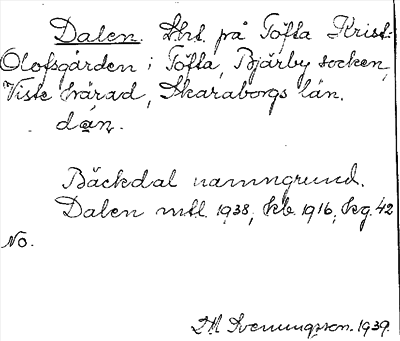 Dalen. Lht. på Tofta Krist-
Olofsgården i Töfta, Bjärby socken,
Viste härad, Skaraborgs län.
dạn.
Bäckdal namngrund.
Dalen mtl. 1938, kb 1916, kg. 42
No.
Svenungsson. 1939.